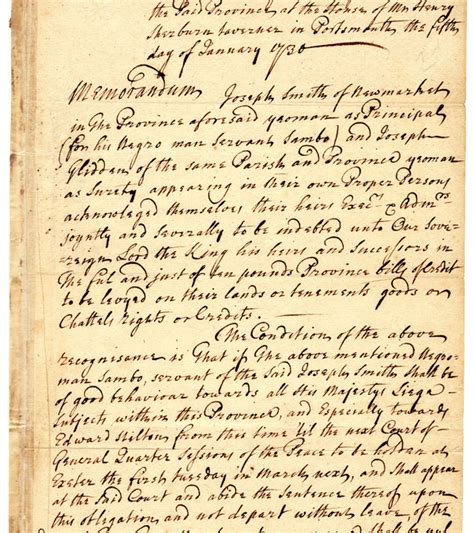 the Said Province at the House of Mr Henry
Sherburn taverner in Portsmouth the fifth
day of January 1730
Memorandum Joseph Smith of Newmarket
in The Province aforesaid yeoman as Principal
(for his Negro man Servant Sambo) and Joseph
Glidden of the same Parish and Province yeoman
as Surety appearing in their own Proper Persons
acknowledged themselves their heirs Execrs & Admrs
joyntly and severally to be indebted unto Our Sove-
reign Lord the King his heirs and Successors in
The ful and just of ten pounds Province bills of Credit
to be levyed on their lands or tenements goods or
Chattels rights or Credits.
The Condition of the above
recognisance is That if The above mentioned Negro-
man Sambo, servant of the Said Joseph Smith Shall be
of good behaviour towards all His Majestys Liege
Subjects within this Province, and Especially towards
Edward Hilton from this time til the next Court of
General Quarter Sessions of the Peace to be holden at
Exeter the first tuesday in March next, and Shall appear
at the Said Court and abide the Sentence thereof upon
this obligation and not depart without leave of the